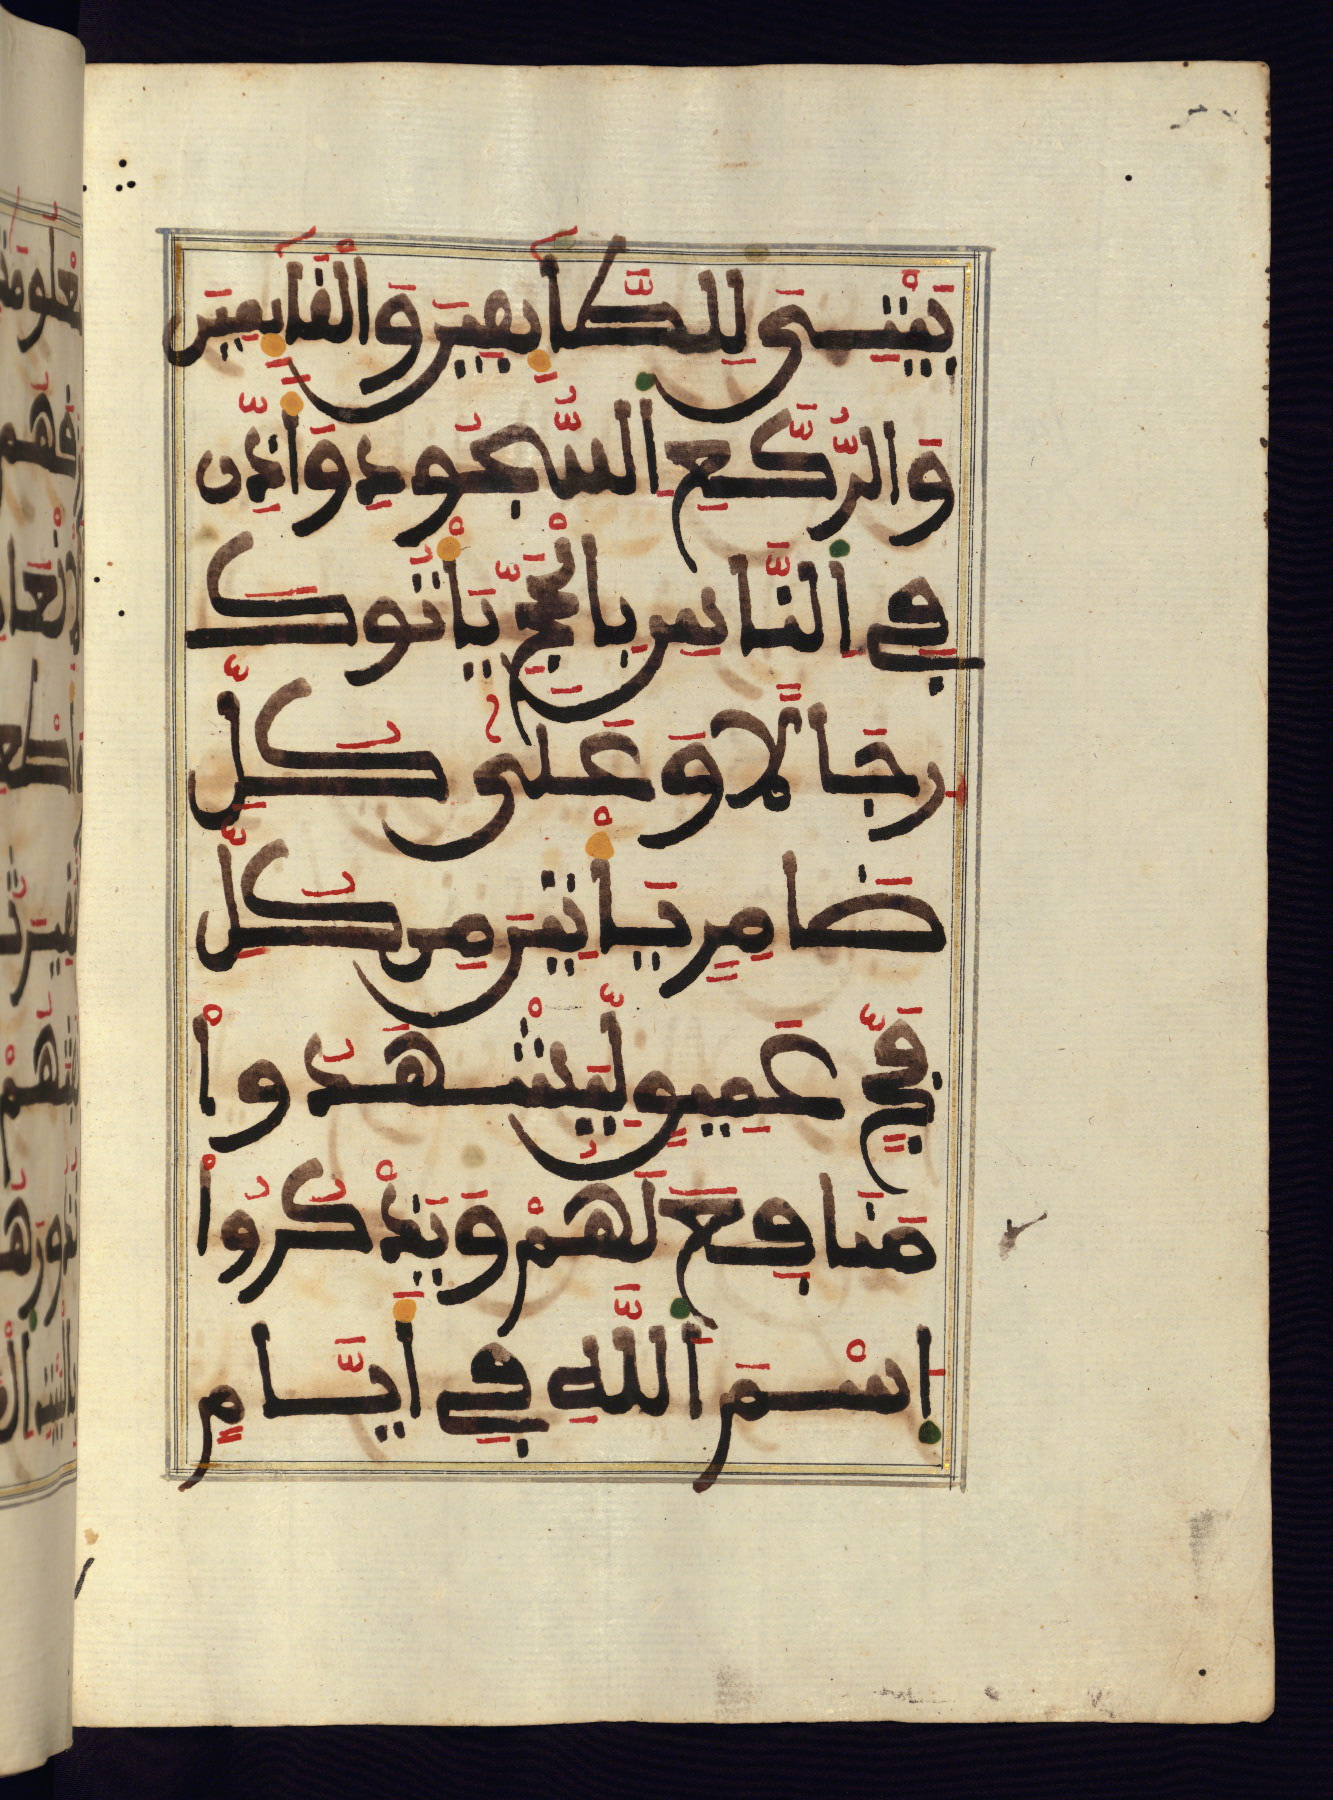 بَيْتِيَ لِلطَّآئِفِينَ وَالْقَآئِمِينَ
وَالرُّكَّعِ اِلسُّجُودِ وَأَذِّن
فِي اِلنَّاسِ بِالْحَجِّ يَأْتُوكَ
رِجَالًا وَعَلَىٰ كُلِّ
ضَامِرٍ يَأْتِينَ مِن كُلِّ
فَجٍّ عَمِيقٍ لِّيَشْهَدُواْ
مَنَافِعَ لَهُمْ وَيَذْكُرُواْ
اِسْمَ اَللَّهِ فِي أَيَّامٍ